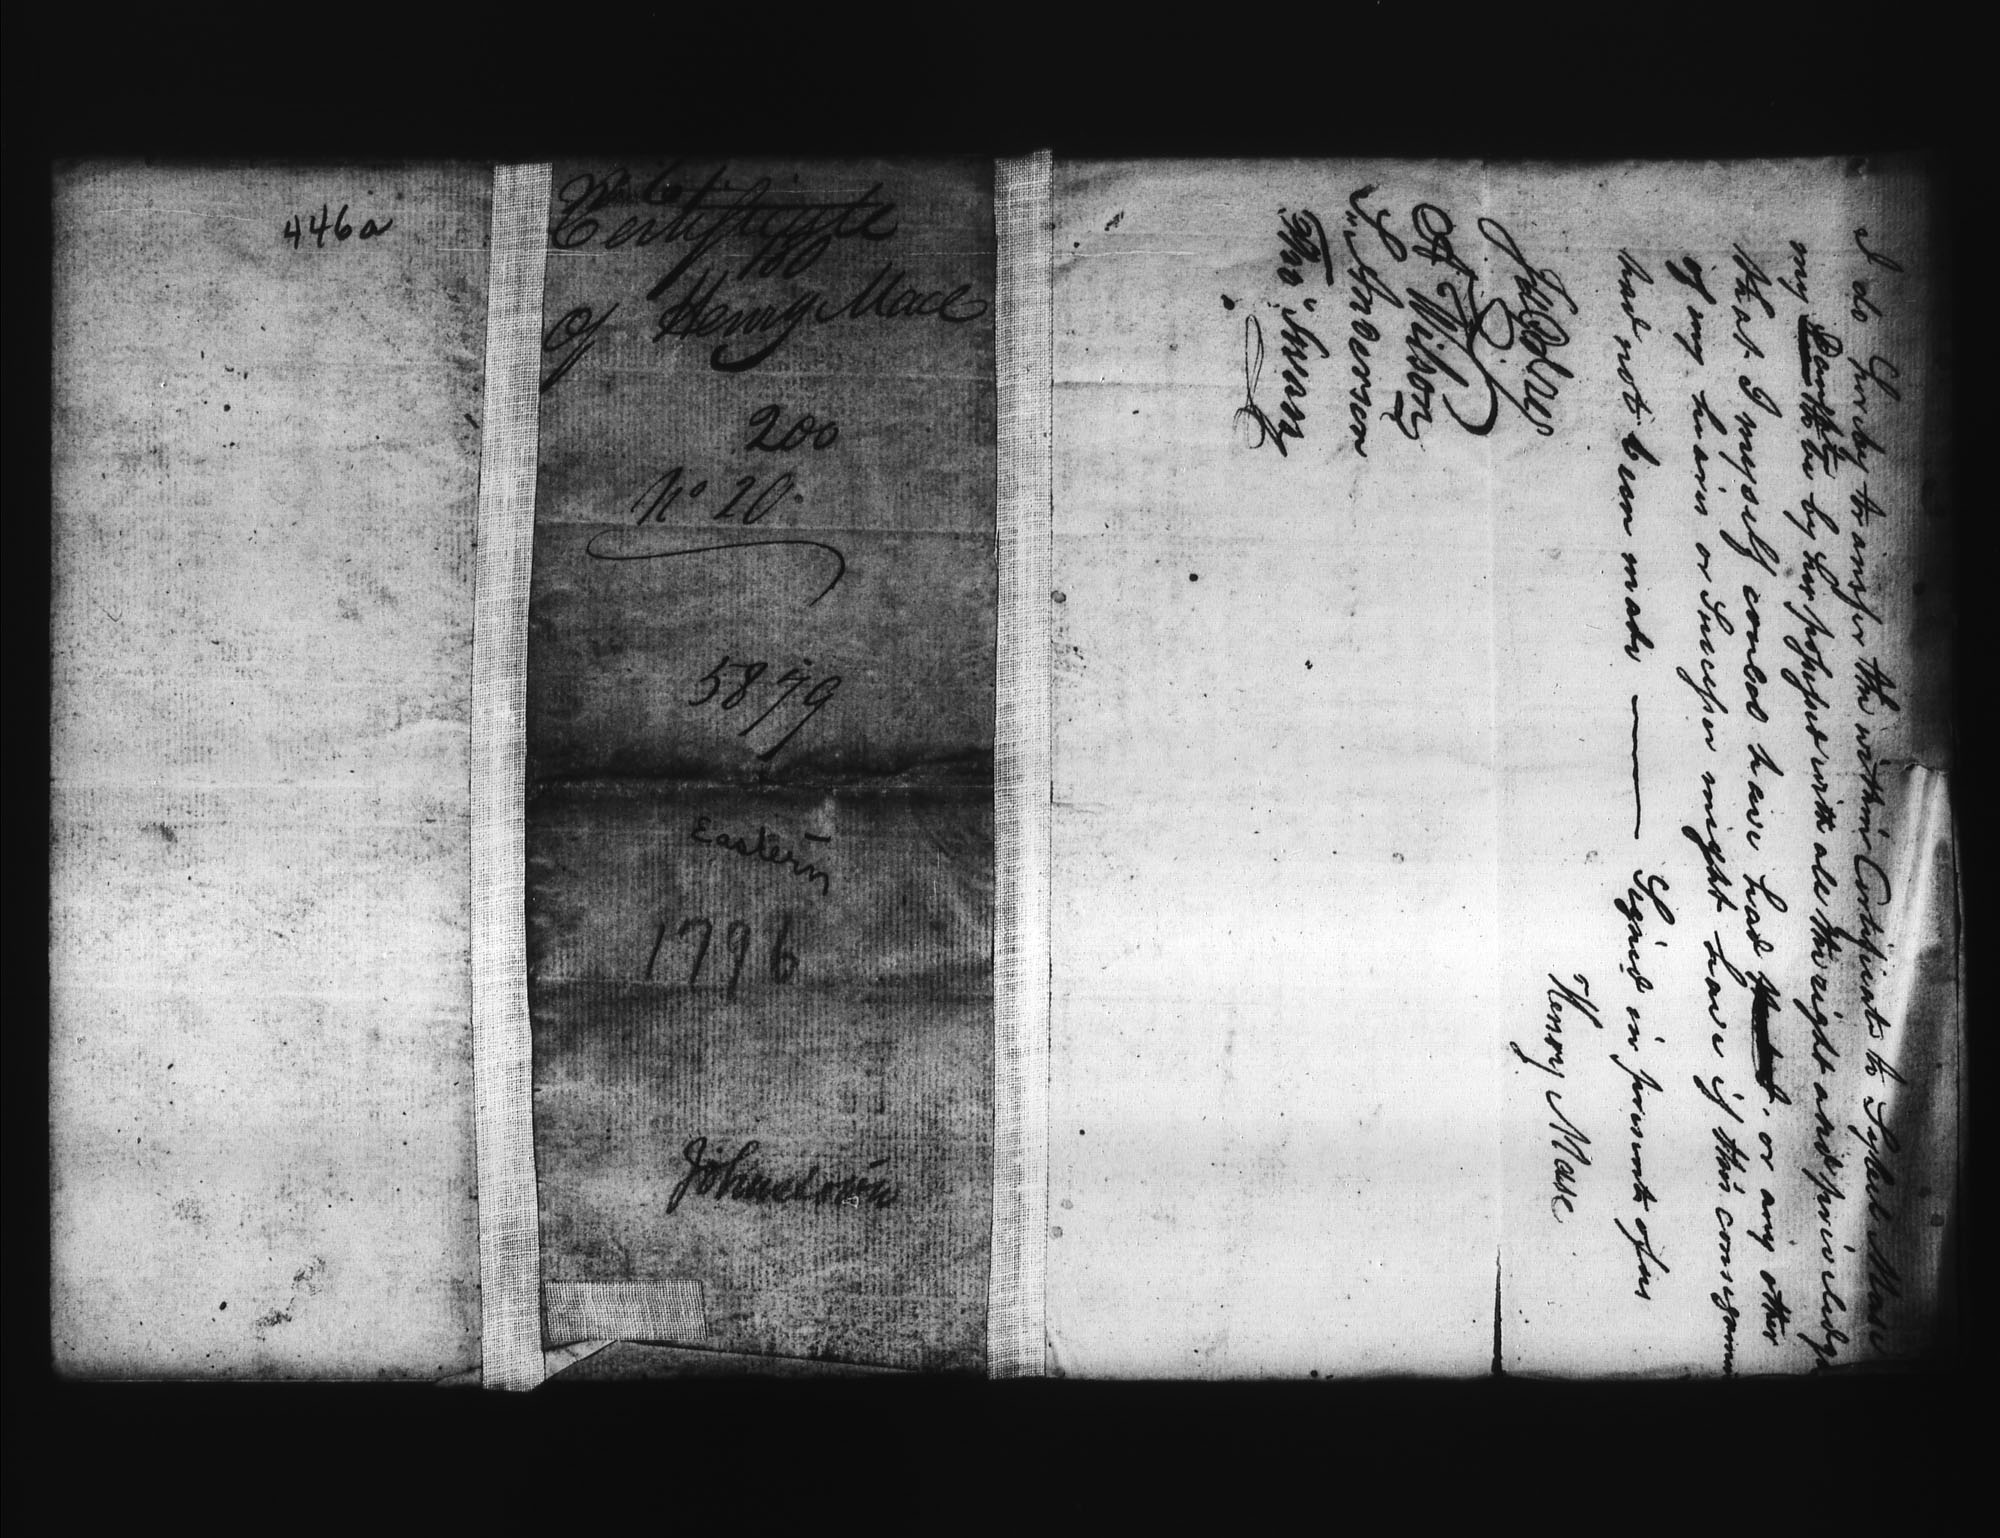 446a
Certificate
100
of Henry Mace
200
No 20
5879
Eastern
1796
I do hereby transfer the within Certificate to Sybel Mase
my Daughter to be by her possessed with all the right and priviledge
that I myself could have had or any other
of my heairs or Sucessor might have if this consignmen
had not been made — Signed in presents of us
Henry Mase
A Wilson
S. Anderson
Tho